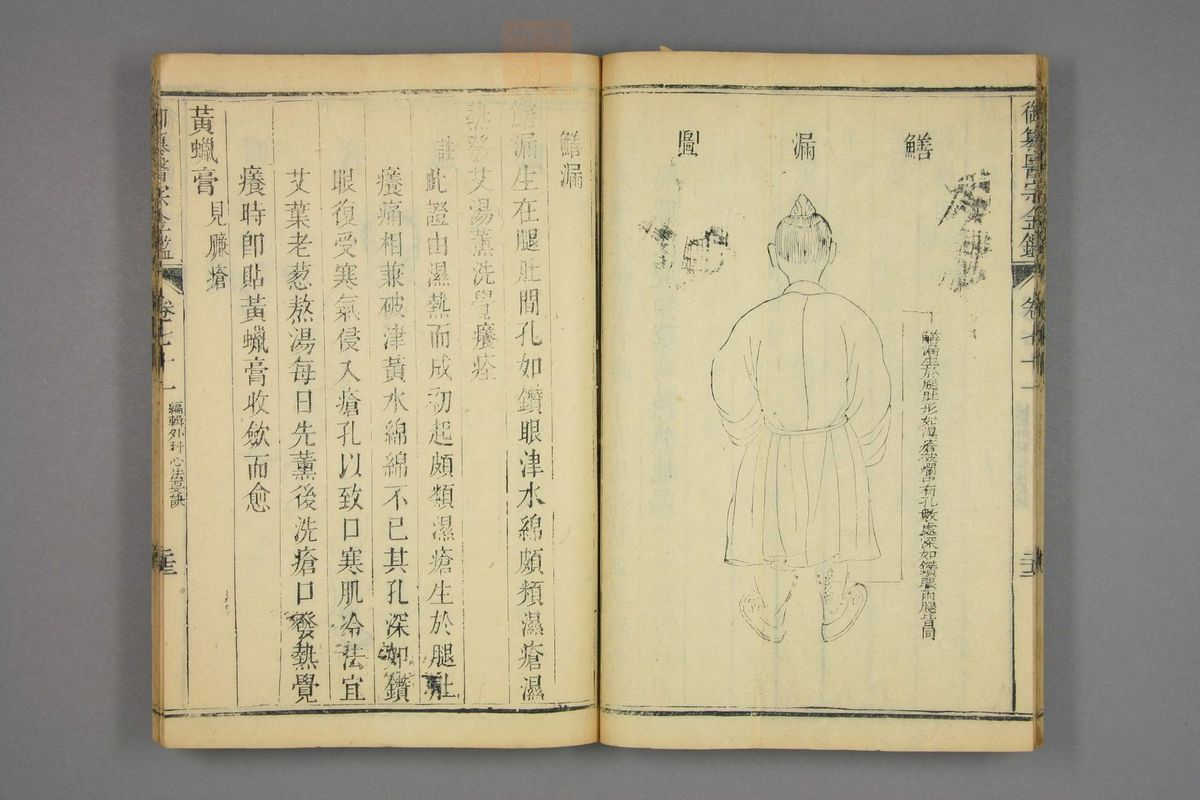 御纂醫宗金鑑
卷七十一
鱔漏圖
鱔漏生於腿肚形如濕瘡破爛中有孔數處深如鑽眼兩腿皆同
鱔漏
鱔漏生在腿肚間孔如鑽眼津水綿頗類濕瘡濕
熱發艾湯薰洗覺癢痊
註此證由濕熱而成初起頗類濕瘡生於腿肚
癢痛相兼破津黃水綿綿不已其孔深如鑽
眼復受寒氣侵入瘡孔以致口寒肌冷法宜
艾葉老葱熬湯每日先薰後洗瘡口發熱覺
癢時卽貼黃蠟膏收斂而愈
黃蠟膏
見臁瘡
御纂醫宗金鑑
卷七十一
編輯外科心法要訣